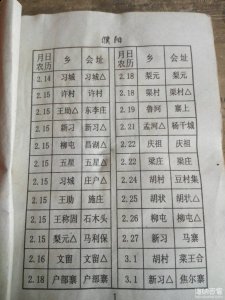 濮阳
月日农历 乡 会址 月日农历 乡 会址
2.14 习城 习城△ 2.18 梨元 梨元
2.15 许村 许村 2.18 梁村 梁村△
2.15 王助△ 东李庄 2.19 鲁河 寨上
2.15 新习 新习△ 2.21 孟河△ 杨干城
2.15 柳屯 昌湖△ 2.22 庆祖 庆祖
2.15 五星 五星△ 2.22 梁庄 梁庄
2.15 习城 庄户△ 2.24 胡村 豆村集
2.15 王助 施庄 2.25 胡状 胡状△
2.15 王称固 石木头 2.26 柳屯 柳屯△
2.15 梨元△ 马利保 2.27 新习 马寨
2.16 文留 文留△ 3.1 胡村 菜王合
2.18 户部寨 户部寨 3.1 新习△ 焦尔寨